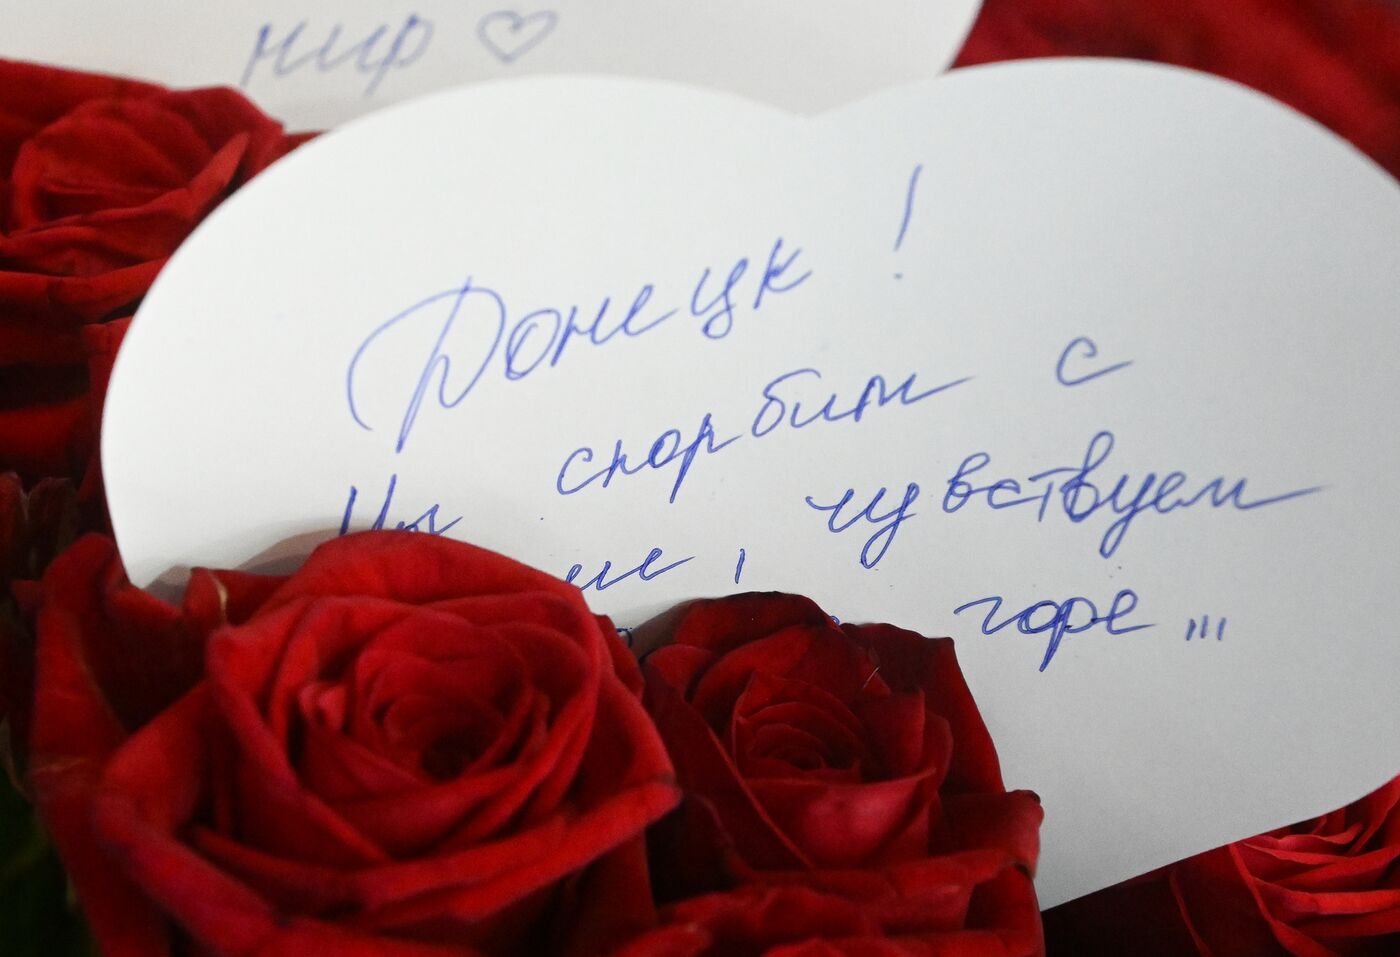 мир ♡
Донецк !
Мы скорбим с
, чувствуем
горе ...